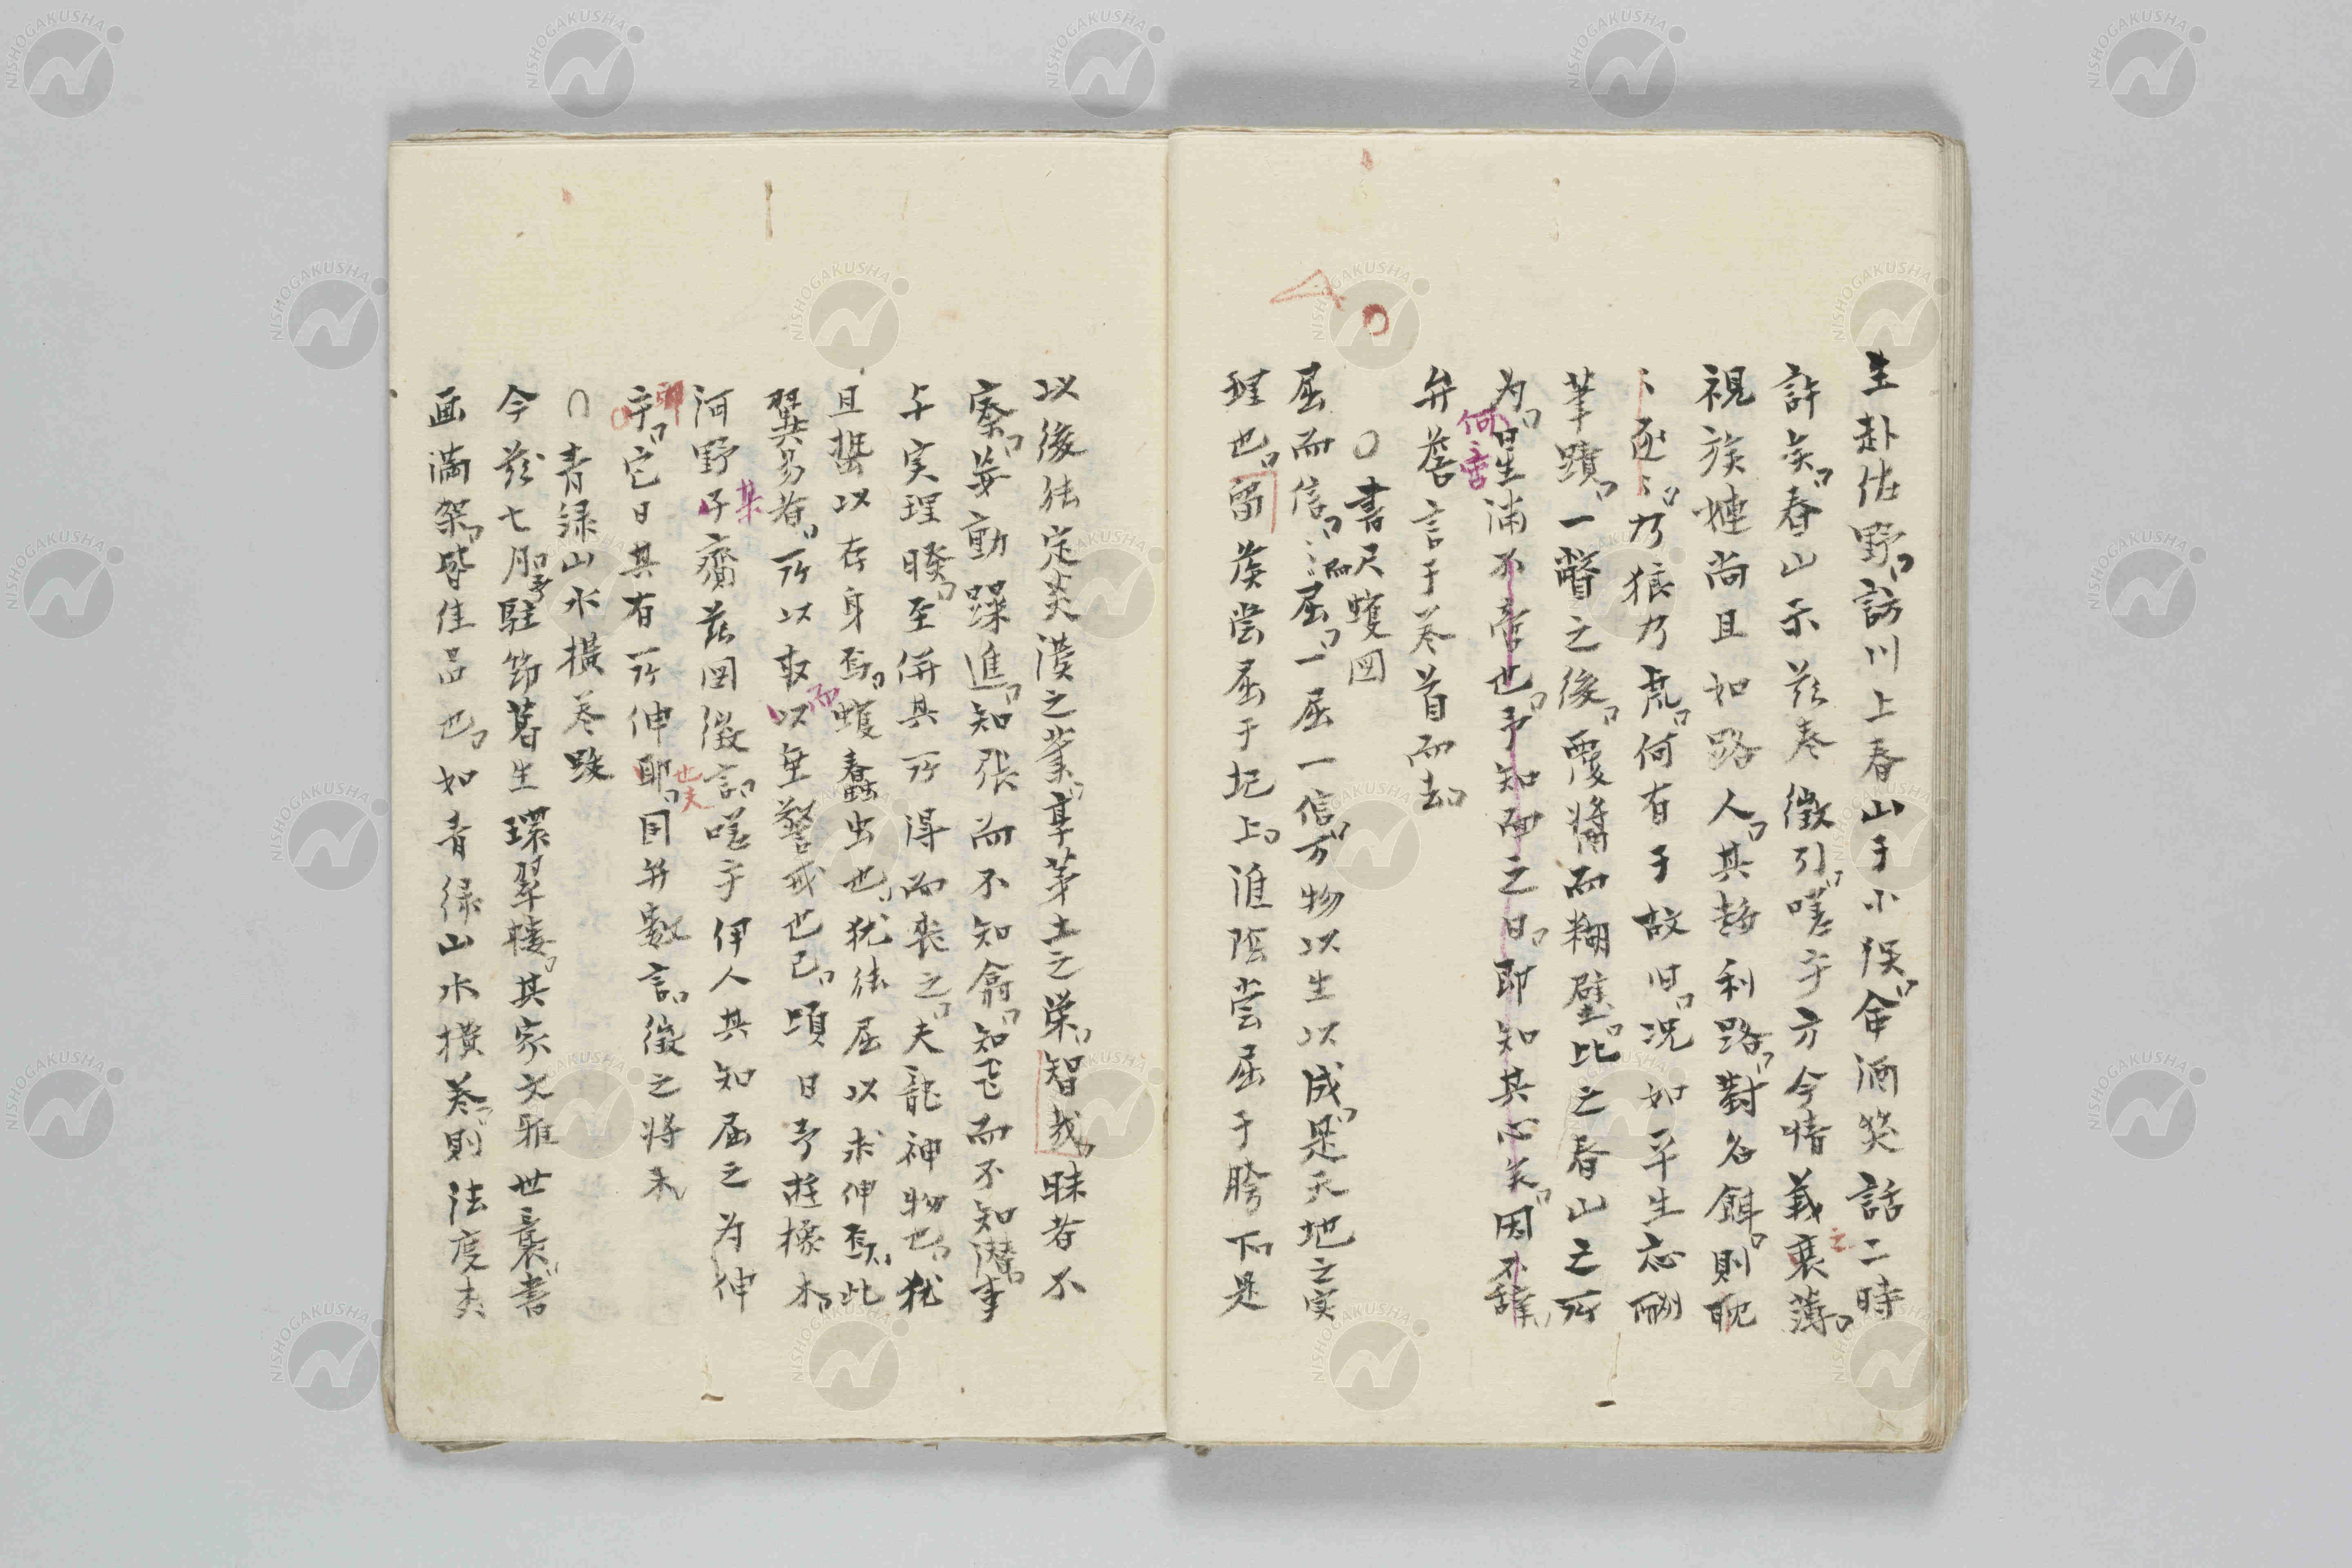 生赴佐野訪川上春山于小俣命酒笑話二時
許矣春山示茲巻徴引嗟乎方今情義衰之薄
視族姻尚且如路人其趨利路對名餌則眈
〻逐〻乃狼乃虎何有于故旧況如平生忘酬
筆蹟一瞥之後覆醬而糊壁比之春山之所
为何啻星浦不啻也予知而之日即知其心矣因不辞
弁蕪言于巻首而去
○書尺蠖図
屈而信〻而屈一屈一信万物以生以成是天地之実
理也留侯嘗屈于圯上淮陰嘗屈于胯下是
以後能定炎漢之業享茅土之栄智哉昧者不
察妄動躁進知張而不知翕知飛而不知潜事
与実理暌至併其所得而喪之夫龍神物也猶
且蟄以存身焉蠖蠢虫也猶能屈以求伸焉此
翼易者所以取以而垂警戒也已頃日予遊橡木
河野子某齎茲図徴言嗟乎伊人其知屈之为伸
乎即它日其有所伸耶也夫因弁数言徴之将来
○青緑山水横巻跋
今茲七月予駐節暮生環翠楼其家文雅世襲書
画満架皆佳品也如青緑山水横巻則法度夫
NISHOGAKUSHA